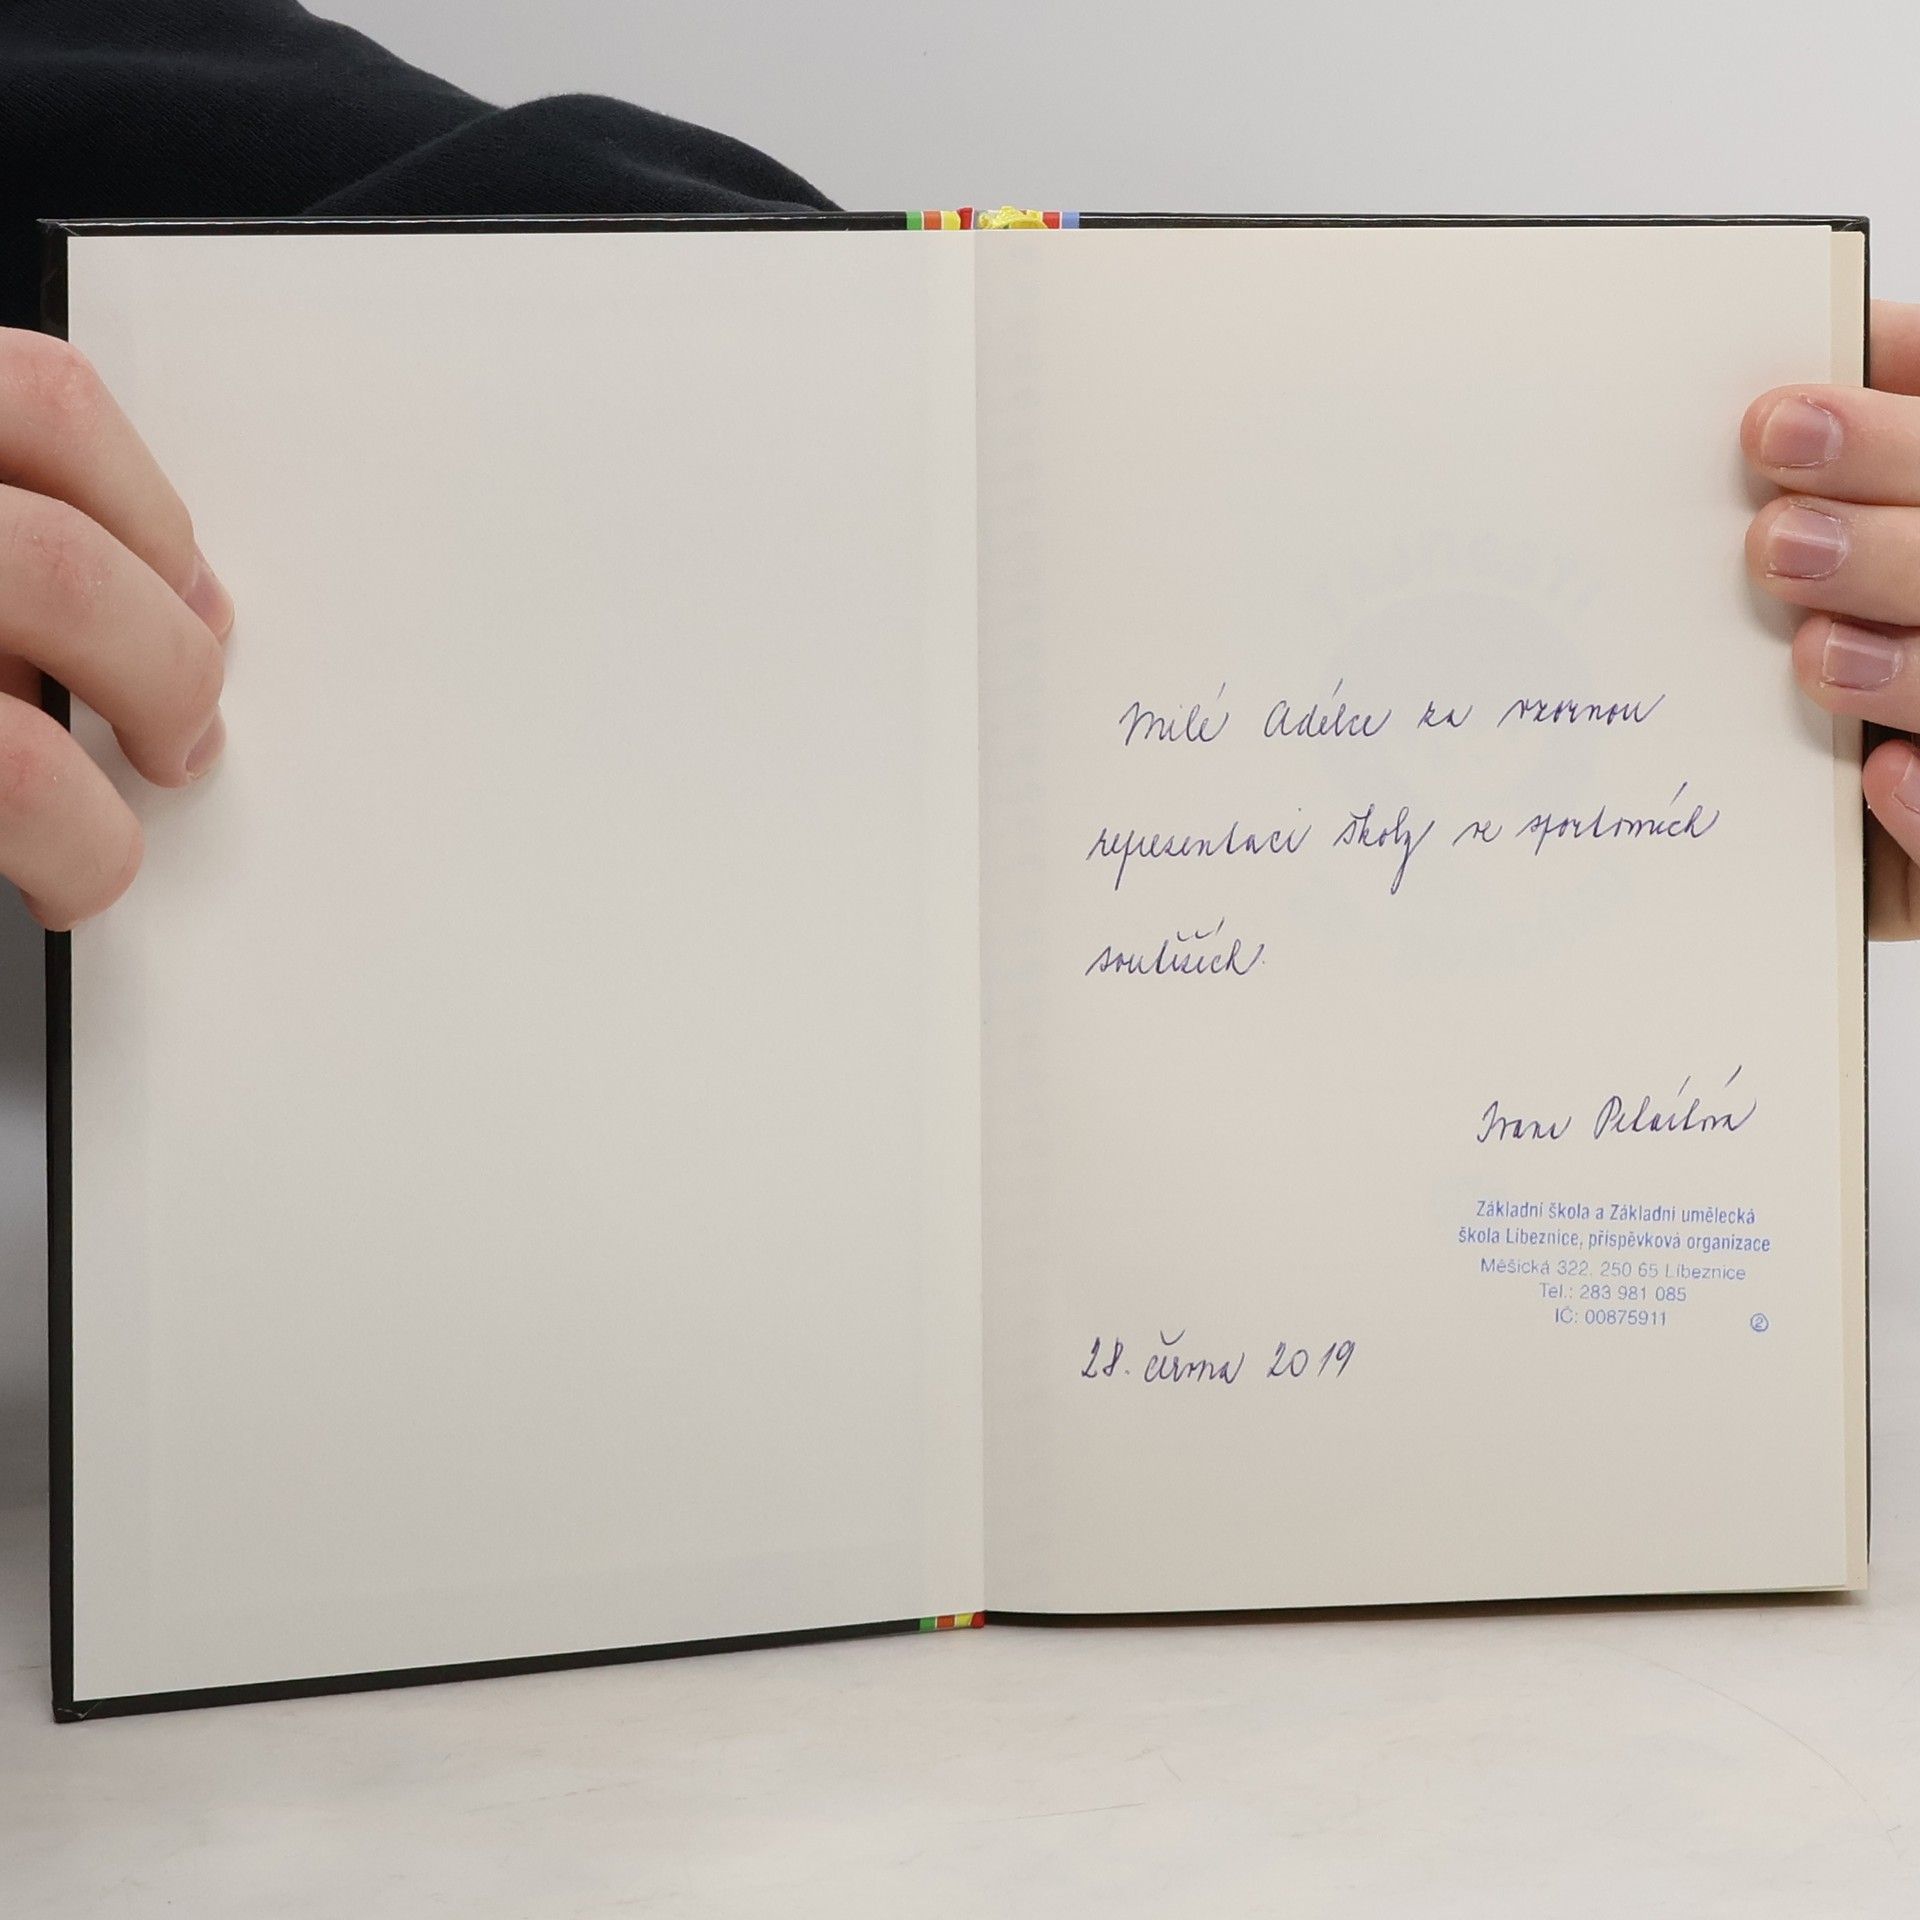 Milé Adélce za vzornou
representaci školy ve sportovních
soutěžích.
Ivana
Základní škola a Základní umělecká
škola Líbeznice, příspěvková organizace
Měšická 322, 250 65 Líbeznice
Tel.: 283 981 085
IČ: 00875911
2
28. června 2019